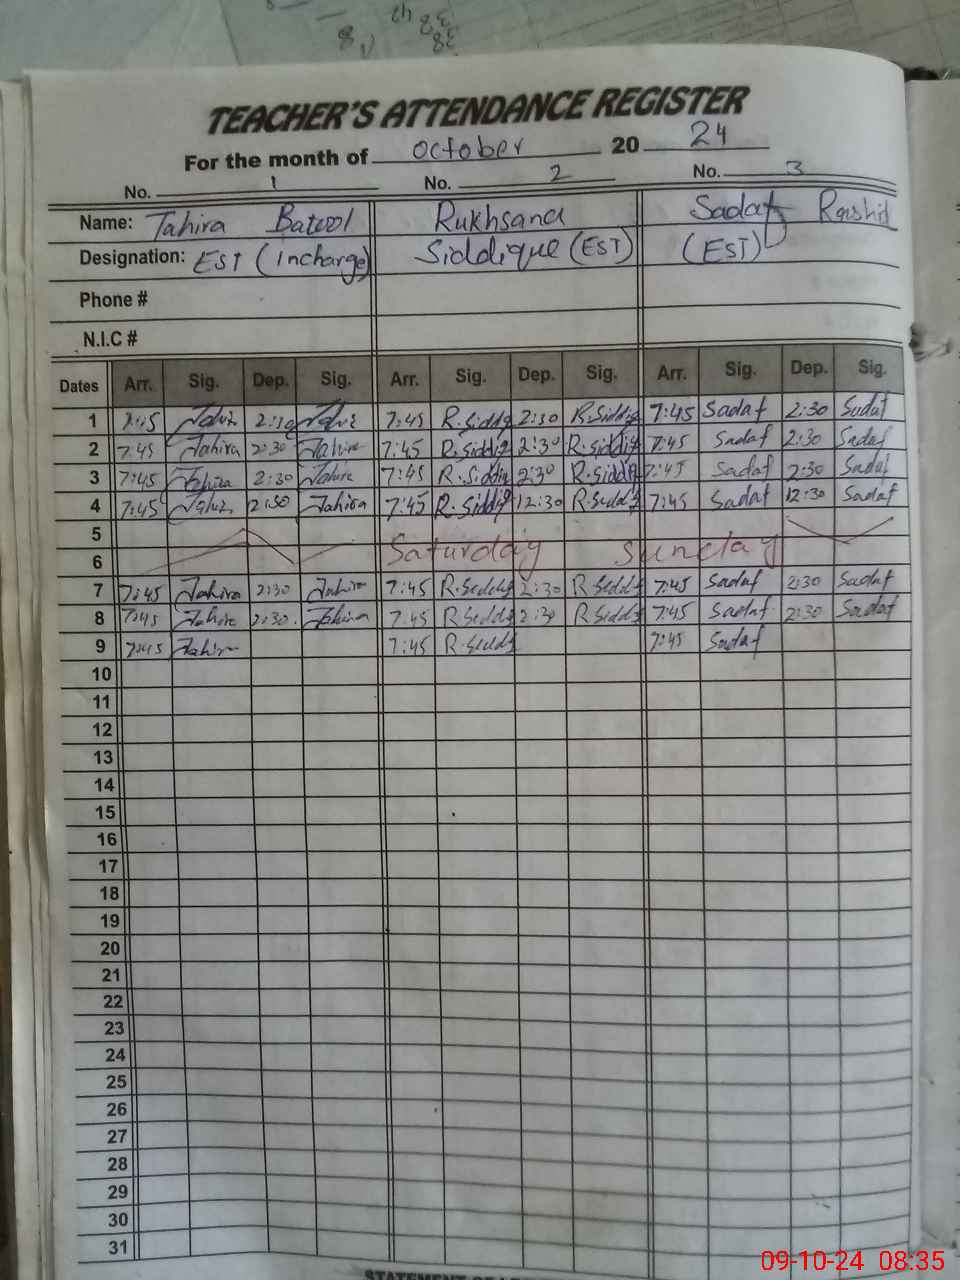 TEACHER'S ATTENDANCE REGISTER
For the month of October 20 24
No. 1 No. 2 No. 3
Name: Tahira Batool Rukhsana Sadaf Rashid
Designation: EST (incharge) Siddique (EST) (EST)
Phone #
N.I.C #
Dates Arr. Sig. Dep. Sig. Arr. Sig. Dep. Sig. Arr. Sig. Dep. Sig.
1 7:45 2:30 7:45 R.Siddiq 2:30 R.Siddiq 7:45 Sadaf 2:30 Sadaf
2 7:45 Tahira 2:30 Tahira 7:45 R.Siddiq 2:30 R.Siddiq 7:45 Sadaf 2:30 Sadaf
3 7:45 Tahira 2:30 Tahira 7:45 R.Siddiq 2:30 R.Siddiq 7:45 Sadaf 2:30 Sadaf
4 7:45 Tahira 7:45 R.Siddiq 12:30 R.Siddiq 7:45 Sadaf 12:30 Sadaf
5
Saturday Sunday
6
7 7:45 Tahira 2:30 Tahira 7:45 R.Siddiq 2:30 R.Siddiq 7:45 Sadaf 2:30 Sadaf
8 7:45 Tahira 2:30 Tahira 7:45 R.Siddiq 2:30 R.Siddiq 7:45 Sadaf 2:30 Sadaf
9 7:45 Tahira 7:45 R.Siddiq 7:45 Sadaf
10
11
12
13
14
15
16
17
18
19
20
21
22
23
24
25
26
27
28
29
30
31
09-10-24 08:35